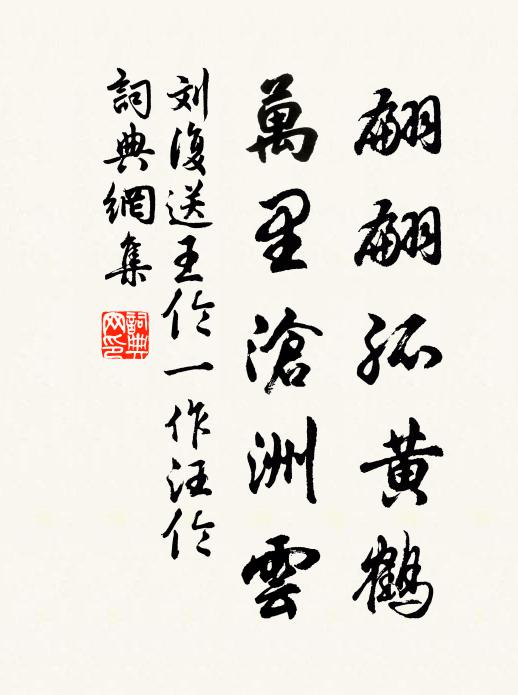 翩翩孤黄鹤
萬里滄洲雲
刘復送王伦一作汪伦
詞典網集
詞典网印